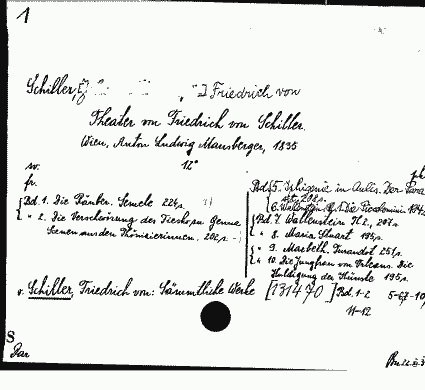 1
Schiller, [J Friedrich von
Theater von Friedrich von Schiller.
Wien, Anton Ludwig Mausberger, 1835
12°
fr.
Bd. 1. Die Räuber. Semele 224s.
" 2. Die Verschwörung des Fiesko zu Genua
Scenen aus den Phönizierinnen. 202s.
Bd. 5. Iphigenie in Aulis. Der Para
sit. 202s.
6. Wallenstein. Die Piccolomini
Bd. 7. Wallenstein Th 2., 207s.
" 8. Maria Stuart 195s.
" 9. Macbeth. Turandot 251s.
" 10. Die Jungfrau von Orleans. Die
Huldigung der Künste 195s.
s. Schiller, Friedrich von: Sämmtliche Werke [131470] Bd. 1-2 5-6,7-10,
11-12
S
Dar